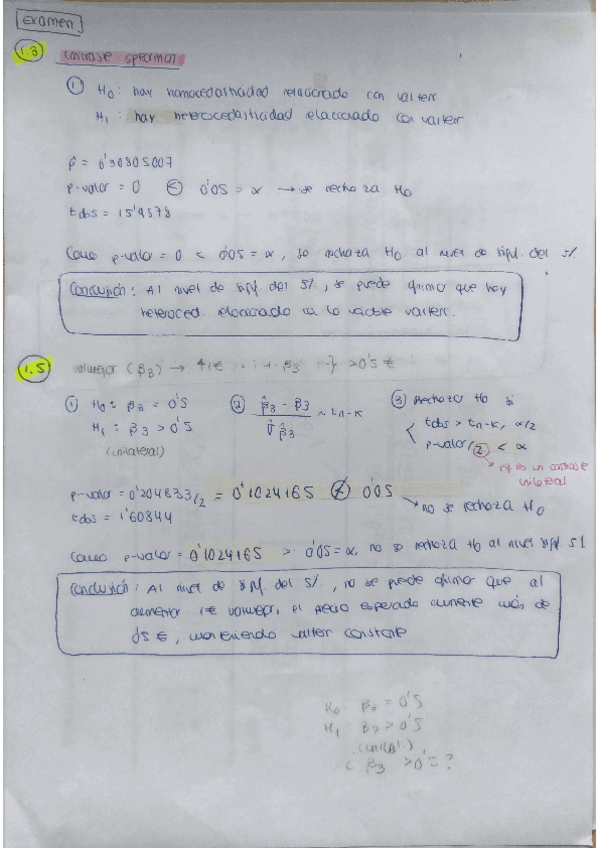 Examen
1.3 Contraste Spearman
① H₀: hay homocedasticidad relacionado con valterr
H₁: hay heterocedasticidad relacionado con valterr
ρ̂ = 0'30805007
p-valor = 0 < 0'05 = α → se rechaza H₀
tobs = 15'9578
Como p-valor = 0 < 0'05 = α, se rechaza H₀ al nivel de signf. del 5%
Conclusión: Al nivel de signf del 5%, se puede afirmar que hay
heteroced. relacionado con la variable valterr.
1.5 valmejor (β₃) → >0'5 €
① H₀: β₃ = 0'5
H₁: β₃ > 0'5
(unilateral)
② β̂₃ - β₃ / σ̂ β̂₃ ~ tn-k
③ Rechazar H₀ si
tobs > tn-k, α/2
p-valor/2 < α
es un contraste
unilateral
p-valor = 0'204833/2 = 0'1024165 ≮ 0'05
→ no se rechaza H₀
tobs = 1'60844
Como p-valor = 0'1024165 > 0'05 = α, no se rechaza H₀ al nivel signf. 5%
Conclusión: Al nivel de signf del 5%, no se puede afirmar que al
aumentar 1€ valmejor, el precio esperado aumente más de
0'5 €, manteniendo valterr constante
H₀: = 0'5
H₁: > 0'5
β₃ > 0' = ?